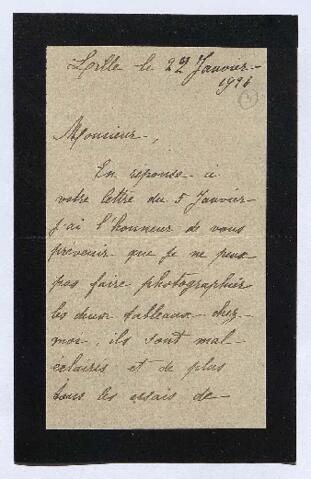 Lille le 22 Janvier
1926
Monsieur,
En réponse à
votre lettre du 5 Janvier
j'ai l'honneur de vous
prévenir que je ne peux
pas faire photographier
les deux tableaux chez
moi, ils sont mal
éclairés et de plus
tous les essais de